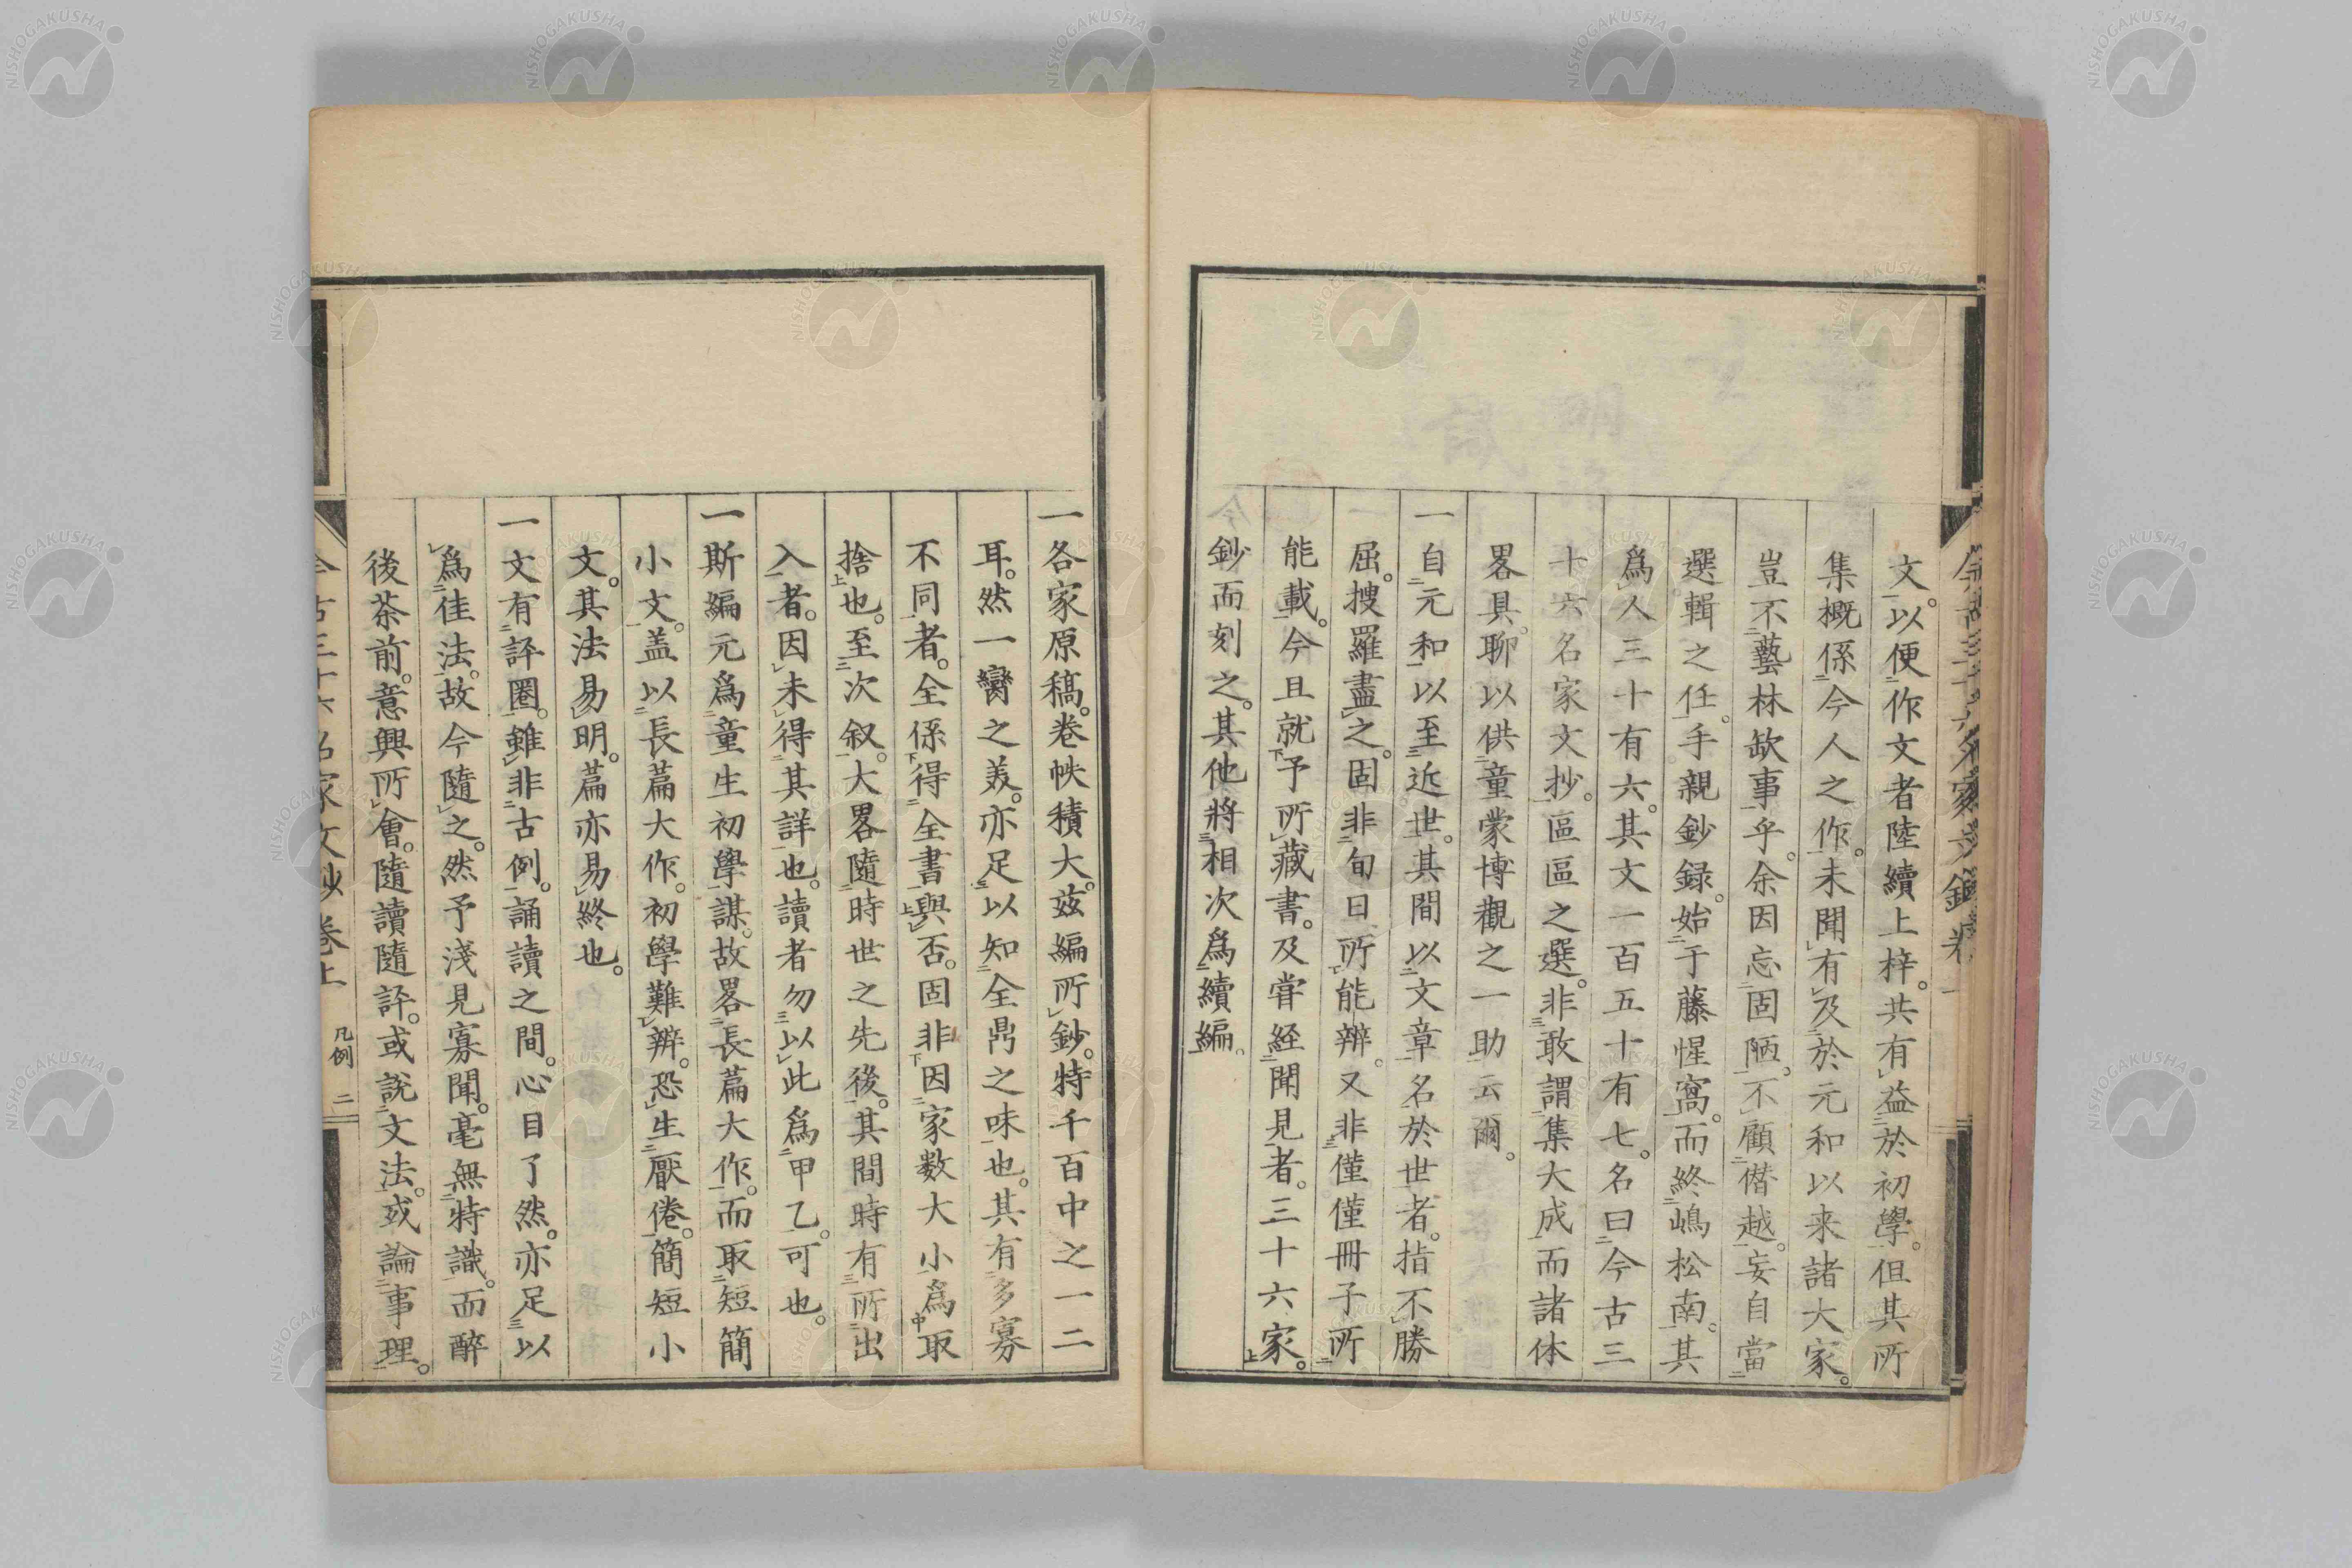 文。以便作文者陸續上梓。共有益於初學。但其所
集概係今人之作。未聞有及於元和以来諸大家。
豈不藝林缺事乎。余因忘固陋。不顧僭越。妄自當
選輯之任。手親鈔録。始于藤惺窩。而終嶋松南。其
爲人三十有六。其文一百五十有七。名曰今古三
十六名家文抄。區區之選。非敢謂集大成而諸体
畧具。聊以供童蒙博觀之一助云爾。
一自元和以至近世。其間以文章名於世者。指不勝
屈。搜羅盡之。固非旬日所能辨。又非僅僅冊子所
能載。今且就予所藏書。及甞経聞見者。三十六家。
鈔而刻之。其他將相次爲續編。
一各家原稿。巻帙積大。茲編所鈔。特千百中之一二
耳。然一臠之美。亦足以知全鼎之味也。其有多寡
不同者。全係得全書與否。固非因家数大小爲取
捨也。至次叙。大畧隨時世之先後。其間時有所出
入者。因未得其詳也。讀者勿以此爲甲乙。可也。
一斯編元爲童生初學謀。故畧長篇大作。而取短簡
小文。盖以長篇大作。初學難辨。恐生厭倦。簡短小
文。其法易明。篇亦易終也。
一文有評圏。雖非古例。誦讀之間。心目了然。亦足以
爲佳法。故今隨之。然予淺見寡聞。毫無特識。而醉
後茶前。意興所會。隨讀隨評。或說文法。或論事理。
今古三十六名家文鈔 巻上 凡例 二